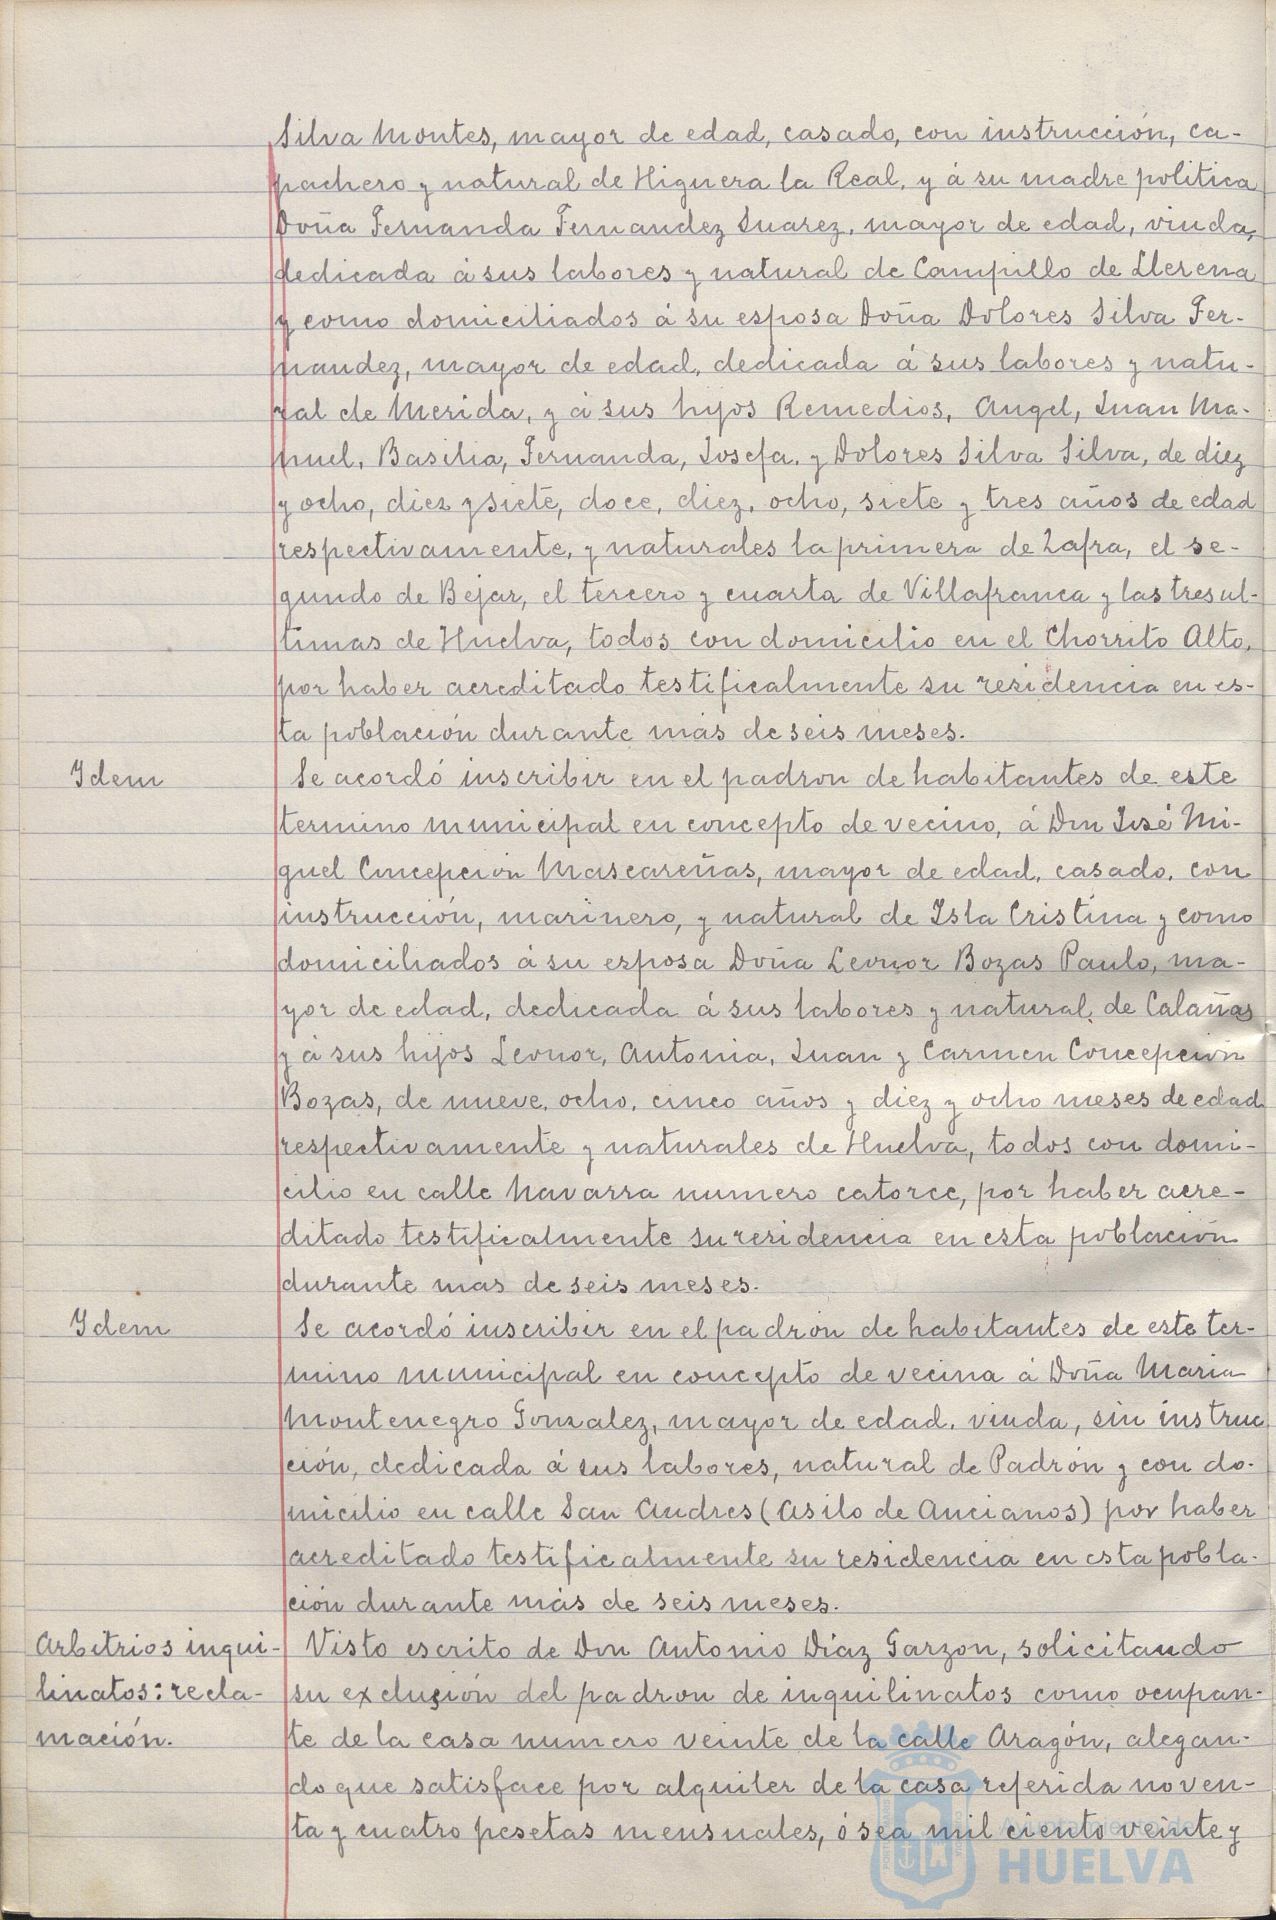 Silva Montes, mayor de edad, casado, con instrucción, ca-
pachero y natural de Higuera la Real, y á su madre politica
Doña Fernanda Fernandez Suarez, mayor de edad, viuda,
dedicada á sus labores y natural de Campillo de Llerena
y como domiciliados á su esposa Doña Dolores Silva Fer-
nandez, mayor de edad, dedicada á sus labores y natu-
ral de Merida, y á sus hijos Remedios, Angel, Juan Ma-
nuel, Basilia, Fernanda, Josefa, y Dolores Silva Silva, de diez
y ocho, diez y siete, doce, diez, ocho, siete y tres años de edad
respectivamente, y naturales la primera de Zafra, el se-
gundo de Bejar, el tercero y cuarta de Villafranca y las tres ul-
timas de Huelva, todos con domicilio en el Chorrito Alto,
por haber acreditado testificalmente su residencia en es-
ta población durante más de seis meses.
Ydem
Se acordó inscribir en el padron de habitantes de este
termino municipal en concepto de vecino, á Don José Mi-
guel Concepción Mascareñas, mayor de edad, casado, con
instrucción, marinero, y natural de Isla Cristina y como
domiciliados á su esposa Doña Leonor Bozas Paulo, ma-
yor de edad, dedicada á sus labores y natural de Calañas
y á sus hijos Leonor, Antonia, Juan y Carmen Concepción
Bozas, de nueve, ocho, cinco años y diez y ocho meses de edad
respectivamente y naturales de Huelva, todos con domi-
cilio en calle Navarra numero catorce, por haber acre-
ditado testificalmente su residencia en esta población
durante mas de seis meses.
Ydem
Se acordó inscribir en el padron de habitantes de este ter-
mino municipal en concepto de vecina á Doña Maria
Montenegro Gonzalez, mayor de edad, viuda, sin instruc
ción, dedicada á sus labores, natural de Padrón y con do-
micilio en calle San Andres (Asilo de Ancianos) por haber
acreditado testificalmente su residencia en esta pobla-
ción durante más de seis meses.
Arbitrios inqui-
linatos: recla-
mación.
Visto escrito de Don Antonio Díaz Garzon, solicitando
su exclusión del padron de inquilinatos como ocupan-
te de la casa numero veinte de la calle Aragón, alegan-
do que satisface por alquiler de la casa referida noven-
ta y cuatro pesetas mensuales, ó sea mil ciento veinte y
Ayuntamiento de
HUELVA